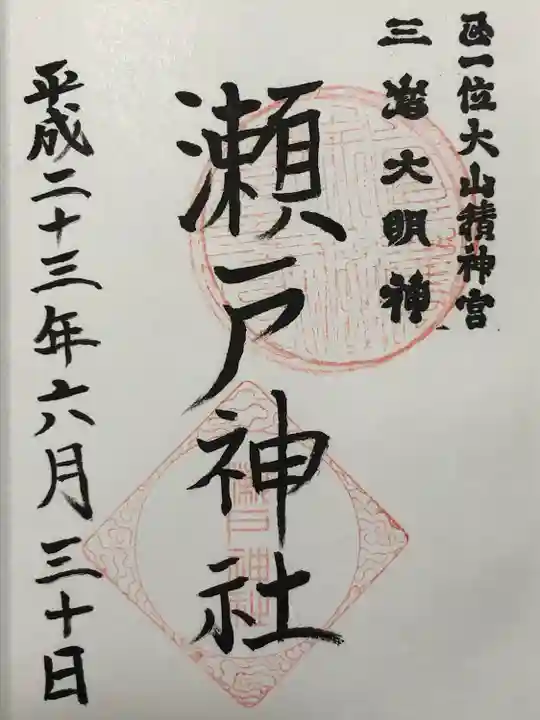 正一位大山積神宮
三嶌大明神
瀬戸神社
平成二十三年六月三十日
瀬戸神社